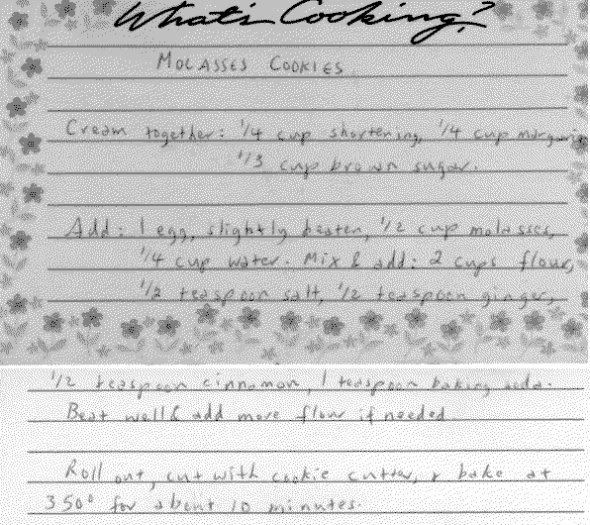 What's Cooking?
MOLASSES COOKIES
Cream together: 1/4 cup shortening, 1/4 cup margarin
1/3 cup brown sugar.
Add: 1 egg, slightly beaten, 1/2 cup molasses,
1/4 cup water. Mix & add: 2 cups flour,
1/2 teaspoon salt, 1/2 teaspoon ginger,
1/2 teaspoon cinnamon, 1 teaspoon baking soda.
Beat well & add more flour if needed.
Roll out, cut with cookie cutter, & bake at
350° for about 10 minutes.